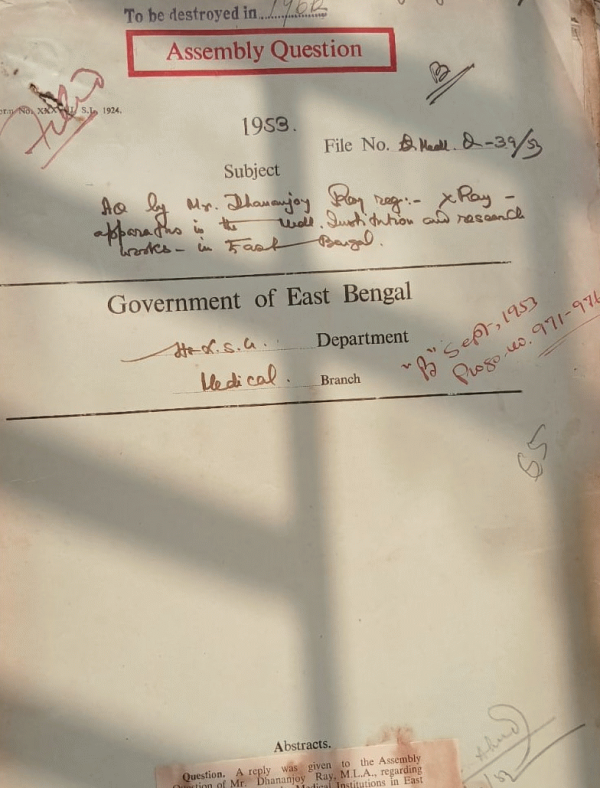 To be destroyed in
Assembly Question
B
S.L. 1924.
Filed
1953.
File No. Q-39/53
Subject
AQ by Mr. Dhananjoy Ray reg:- X Ray -
apparatus in the Medl. Institution and research
works - in East Bengal.
Government of East Bengal
Department
Medical. Branch
"B" Sept, 1953
Progs. no. 971-976
65
Abstracts.
Question. A reply was given to the Assembly
Question of Mr. Dhananjoy Ray, M.L.A., regarding
Medical Institutions in East